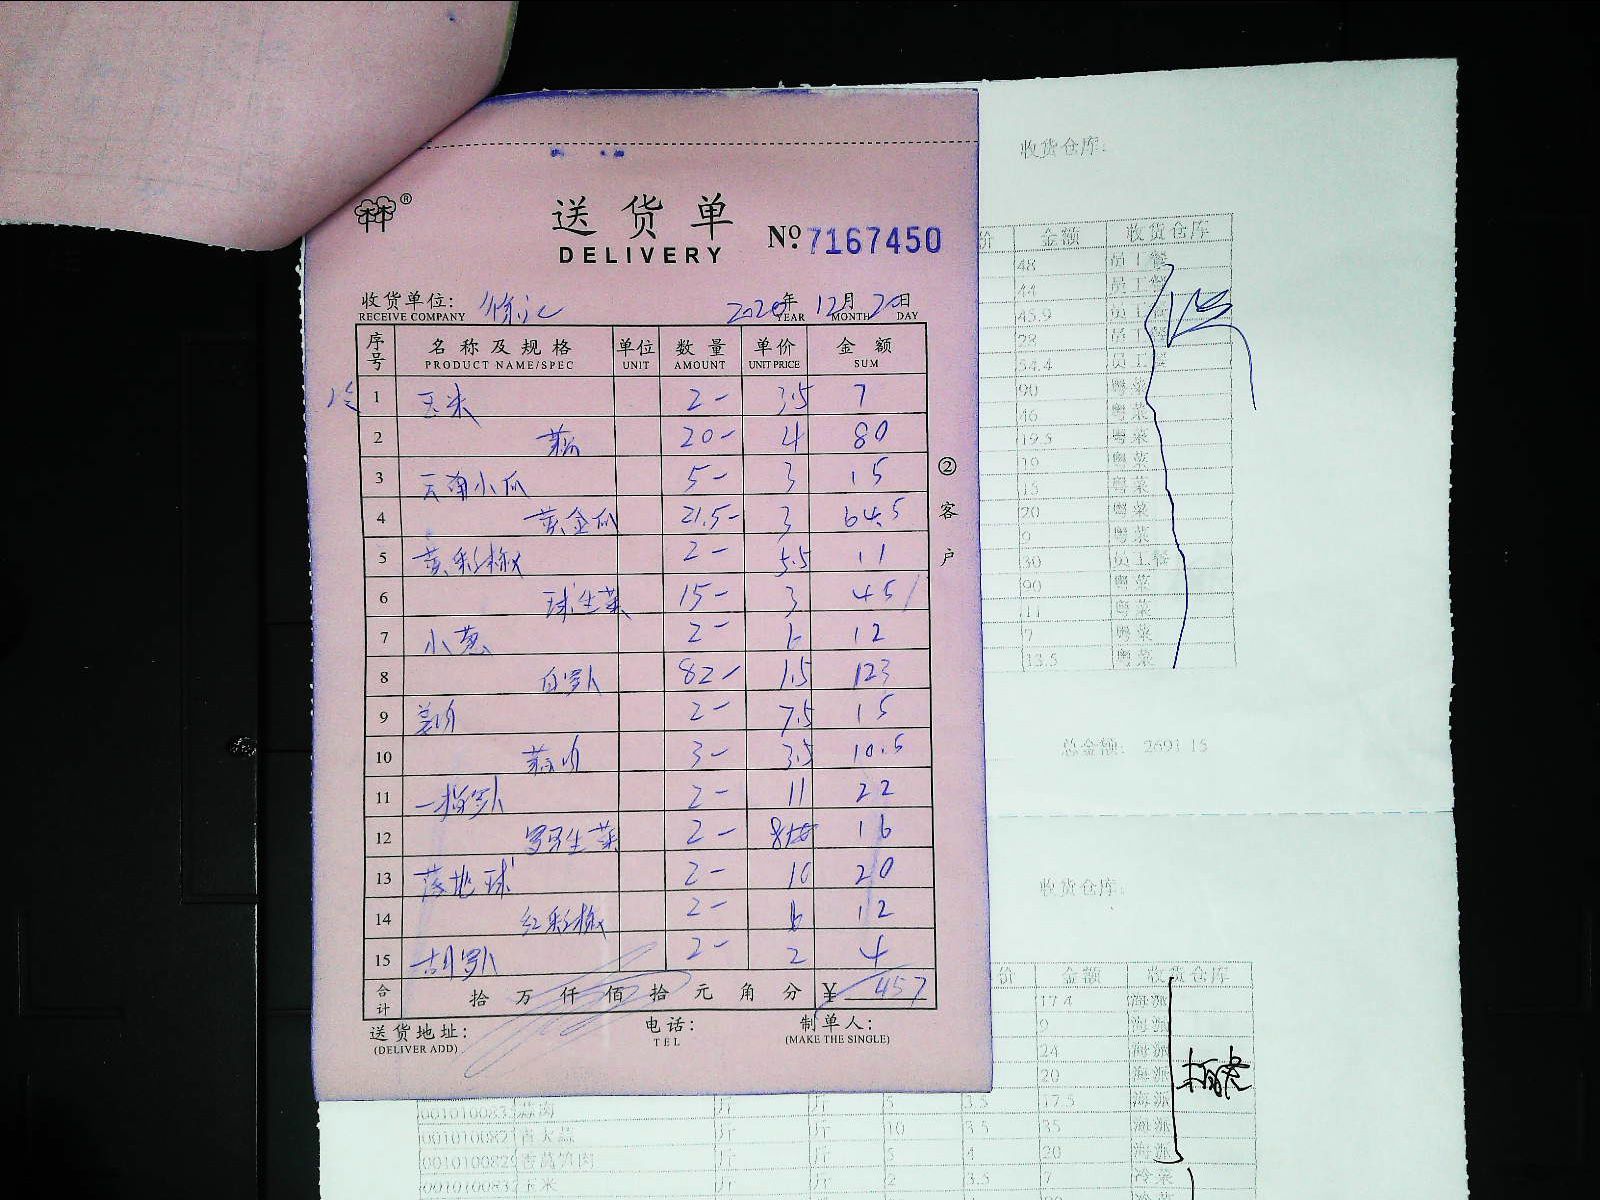 送货单
DELIVERY
№ 7167450
收货单位: 徐汇 2020年12月20日
RECEIVE COMPANY YEAR MONTH DAY
序号 名称及规格 单位 数量 单价 金额
PRODUCT NAME/SPEC UNIT AMOUNT UNIT PRICE SUM
冷 1 玉米 2- 3.5 7
2 20- 4 80
3 云南小瓜 5- 3 15
4 黄金瓜 21.5- 3 64.5
5 黄彩椒 2- 5.5 11
6 球生菜 15- 3 45
7 小葱 2- 6 12
8 白罗卜 82- 1.5 123
9 姜肉 2- 7.5 15
10 蒜肉 3- 3.5 10.5
11 一指罗卜 2- 11 22
12 罗马生菜 2- 8 16
13 落地球 2- 10 20
14 红彩椒 2- 6 12
15 胡罗卜 2- 2 4
合计 拾 万 仟 佰 拾 元 角 分 ¥ 457
送货地址: 电话: 制单人:
(DELIVER ADD) TEL (MAKE THE SINGLE)
② 客户
收货仓库:
价 金额 收货仓库
48 员工餐
44 员工餐
45.9 员工餐
28 员工餐
54.4 员工餐
90 粤菜
46 粤菜
19.5 粤菜
19 粤菜
15 粤菜
20 粤菜
9 粤菜
30 员工餐
90 粤菜
11 粤菜
7 粤菜
13.5 粤菜
总金额: 2691.15
收货仓库:
价 金额 收货仓库
17.4 海派
9 海派
24 海派
20 海派
蒜肉 斤 斤 5 3.5 17.5 海派
青大蒜 斤 斤 10 3.5 35 海派
香莴笋肉 斤 斤 5 4 20 海派
玉米 斤 斤 2 3.5 7 冷菜